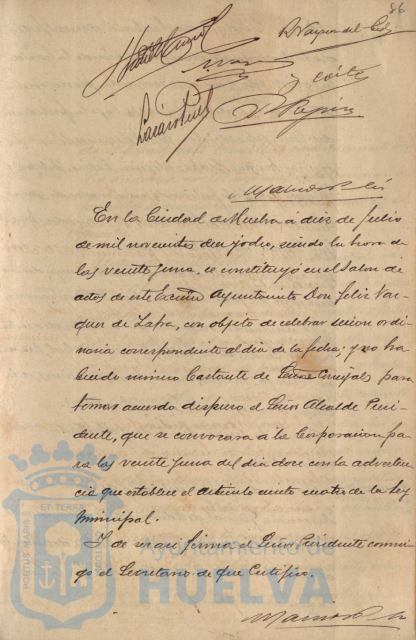 86
y Cortés
En la Ciudad de Huelva á diez de Julio
de mil novecientos diez y ocho, siendo la hora de
las veinte y una, se constituyó en el Salon de
actos de este Excmo Ayuntamiento Don Felix Vaz-
quez de Zafra, con objeto de celebrar sesion ordi-
naria correspondiente al dia de la fecha: y no ha-
biendo número bastante de Señores Concejales para
tomar acuerdo dispuso el Señor Alcalde Presi-
dente, que se convocara á la Corporacion pa-
ra las veinte y una del dia doce con la adverten-
cia que establece el artículo ciento cuatro de la Ley
Municipal.
Y de ello asi firma el Señor Presidente conmi-
go el Secretario de que Certifico.
PORTUS MARIS ET TERRÆ
Ayuntamiento de
HUELVA